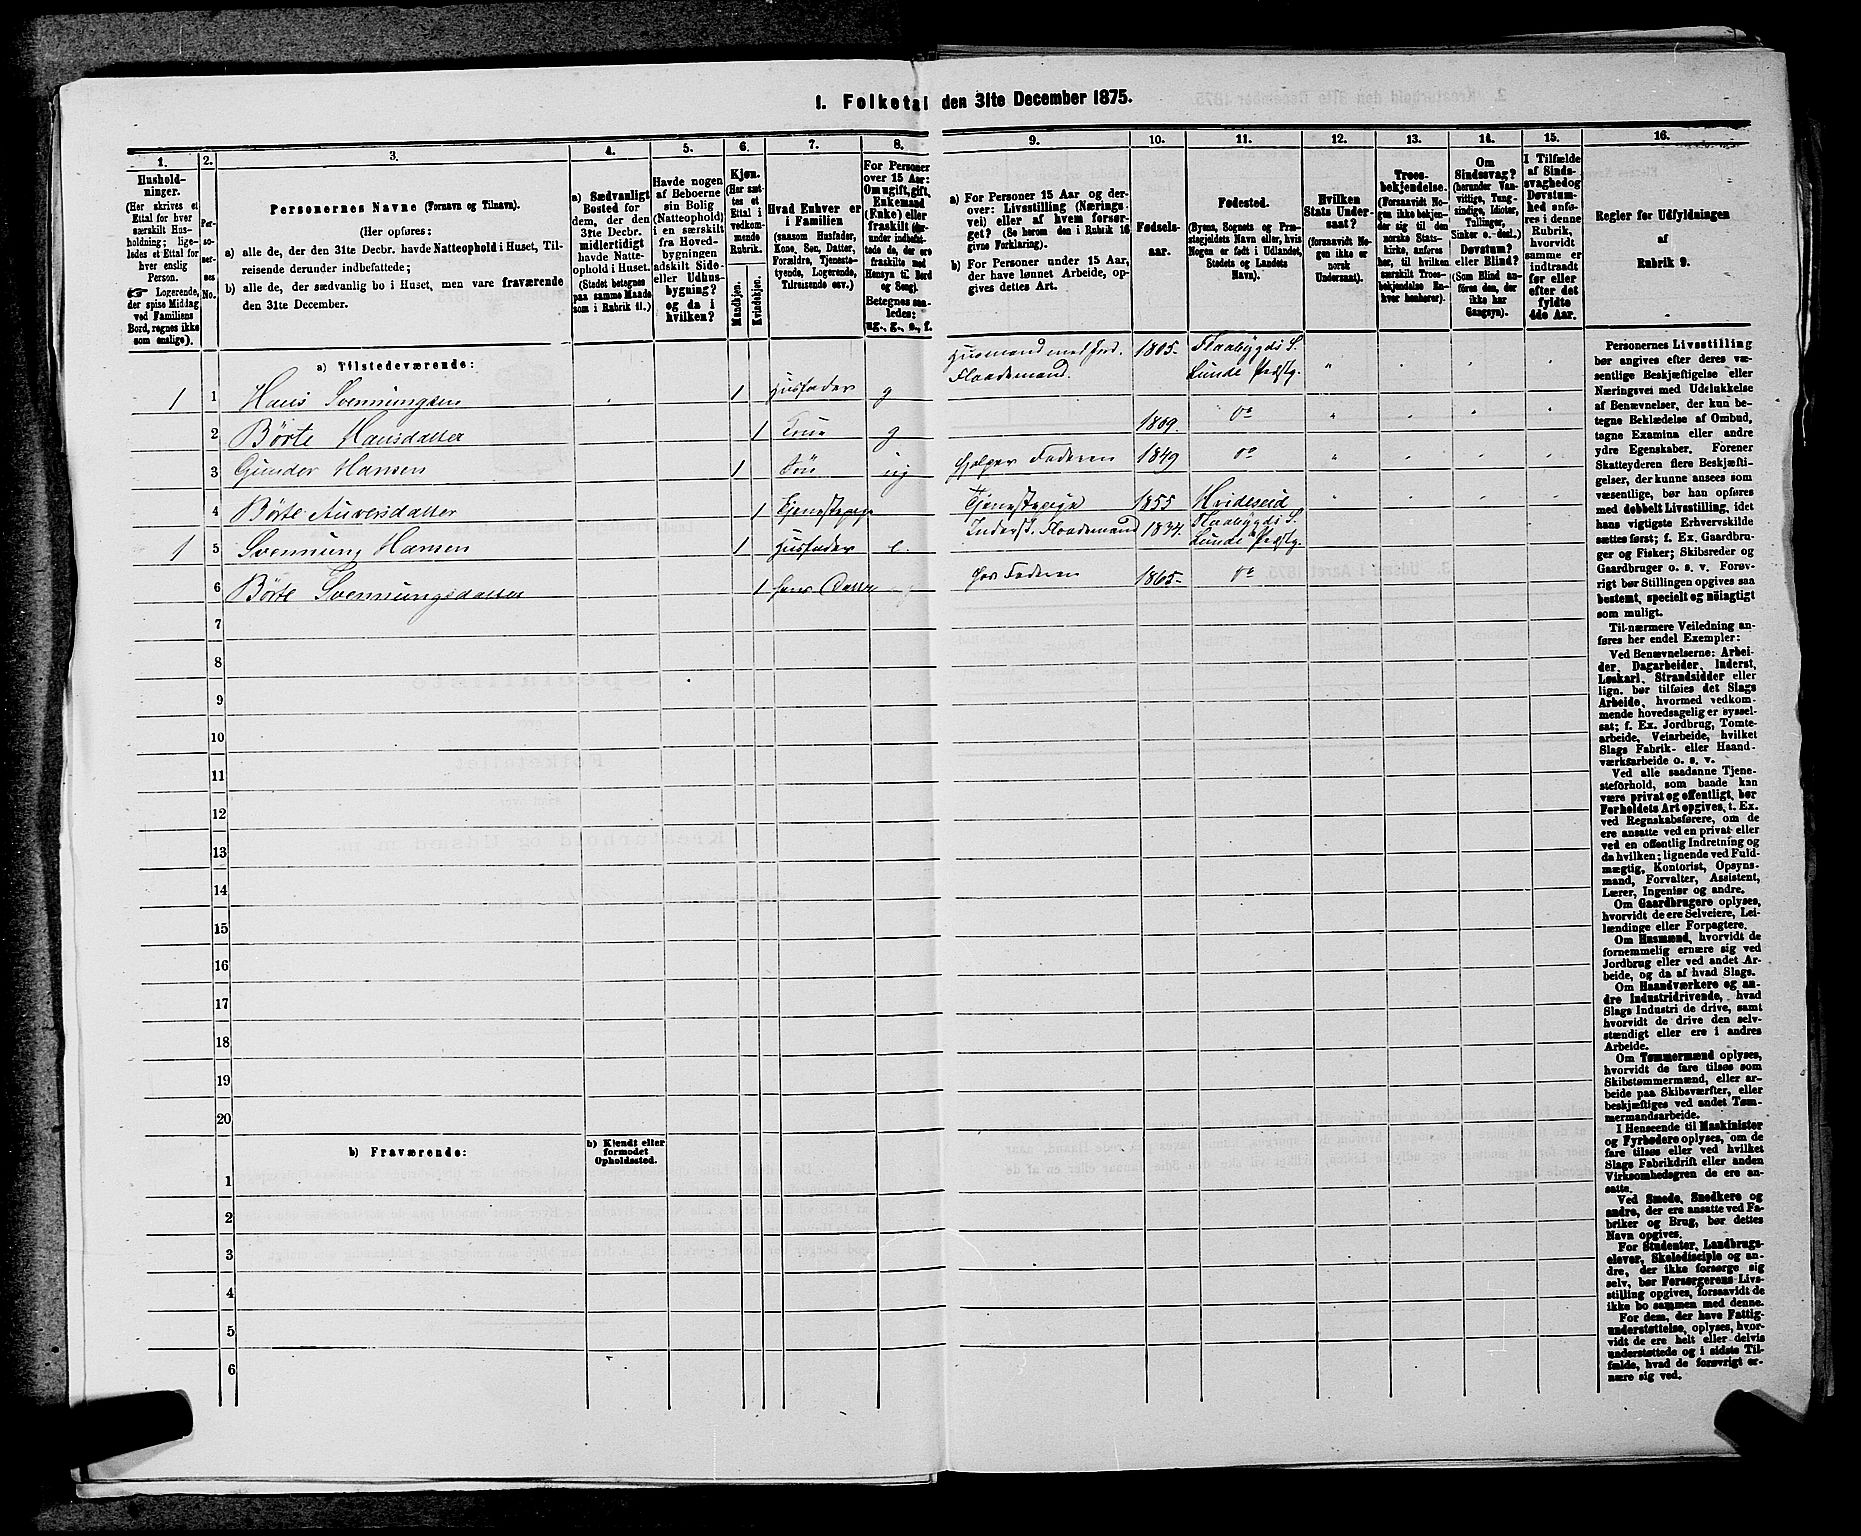 1. Folketal den 31te December 1875.
1.
Hushold-
ninger.
(Her skrives et
Ettal for hver
særskilt Hus-
holdning; lige-
ledes et Ettal for
hver enslig
Person.
Logerende,
der spise Middag
ved Familiens
Bord, regnes ikke
som enslige).
2.
Per-
so-
ner-
nes
No.
3.
Personernes Navne (Fornavn og Tilnavn).
(Her opføres:
a) alle de, der den 31te Decbr. havde Natteophold i Huset, Til-
reisende derunder indbefattede;
b) alle de, der sædvanlig bo i Huset, men vare fraværende
den 31te December.
4.
a) Sædvanligt
Bosted for
dem, der den
31te Decbr.
midlertidigt
havde Natte-
ophold i Huset.
(Stedet betegnes
paa samme Maade
som i Rubrik 11.)
5.
Havde nogen
af Beboerne
sin Bolig
(Natteophold)
i en særskilt
fra Hoved-
bygningen
adskilt Side-
eller Udhus-
bygning?
og da i
hvilken?
6.
Kjøn.
(Her sæt-
tes et
Ettal i
vedkom-
mende
Rubrik.
Mandkjøn.
Kvindekjøn.
7.
Hvad Enhver er
i Familien
(saasom Husfader,
Kone, Søn, Datter,
Forældre, Tjeneste-
tyende, Logerende,
Tilreisende osv.)
8.
For Personer
over 15 Aar:
Om ugift, gift,
Enkemand
(Enke) eller
fraskilt (der-
under indbefat-
tede de, der ere
fraskilte med
Hensyn til Bord
og Seng).
Betegnes saa-
ledes:
ug., g., e., f.
9.
a) For Personer 15 Aar og der-
over: Livsstilling (Nærings-
vei) eller af hvem forsør-
get? (Se herom den i Rubrik 16
givne Forklaring).
b) For Personer under 15 Aar,
der have lønnet Arbeide, op-
gives dettes Art.
10.
Fødsels-
aar.
11.
Fødested.
(Byens, Sognets og Præ-
stegjeldets Navn eller, hvis
Nogen er født i Udlandet,
Stedets og Landets
Navn).
12.
Hvilken
Stats Under-
saat?
(forsaavidt No-
gen ikke er
norsk
Undersaat).
13.
Troes-
bekjendelse.
(Forsaavidt No-
gen ikke bekjen-
der sig til den
norske Stats-
kirke, anføres
her, til hvilken
særskilt Troes-
bekjendelse En-
hver henhører).
14.
Om
Sindssvag?
(herunder Van-
vittige, Tung-
sindige, Idioter,
Tullinger,
Sinker o. desl.)
Døvstum?
eller Blind?
(Som Blind an-
føres den, der
ikke har
Gangsyn).
15.
I Tilfælde
af Sinds-
svaghed og
Døvstum-
hed anfø-
res i denne
Rubrik,
hvorvidt
samme er
indtraadt
før eller
efter det
fyldte
4de Aar.
16.
Regler for Udfyldningen
af
Rubrik 9.
a) Tilstedeværende:
1 1 Hans Svennungsen 1 Husfader g Husmand med Jord. Flaademand. 1805. Flaabygds S. Lunde Prstg.
2 Børte Hansdatter 1 Kone g 1809. Do
3 Gunder Hansen 1 Søn ug Hjelper Faderen 1849 Do
4 Børte Auversdatter 1 Tjenestepige Tjenestepige 1855 Hvideseid
1 5 Svennung Hansen 1 Husfader e. Inderst. Flaademand 1834. Flaabygds S. Lunde Prstg.
6 Børte Svennungsdatter 1 hans Datter hos Faderen 1865. Do
7
8
9
10
11
12
13
14
15
16
17
18
19
20
b) Fraværende:
b) Kjendt eller
formodet
Opholdssted.
1
2
3
4
5
6
Personernes Livsstilling
bør angives efter deres væ-
sentlige Beskjæftigelse eller
Næringsvei med Udelukkelse
af Benævnelser, der kun be-
tegne Beklædelse af Ombud,
tagne Examina eller andre
ydre Egenskaber. Forener
Skatteyderen flere Beskjæfti-
gelser, der kunne ansees som
væsentlige, bør han opføres
med dobbelt Livsstilling, idet
hans vigtigste Erhvervskilde
sættes først; f. Ex. Gaardbru-
ger og Fisker; Skibsreder og
Gaardbruger o. s. v. Forøv-
rigt bør Stillingen opgives saa
bestemt, specielt og nøiagtigt
som muligt.
Til nærmere Veiledning an-
føres her endel Exempler:
Ved Benævnelserne: Arbei-
der, Dagarbeider, Inderst,
Løskarl, Strandsidder eller
lign. bør tilføies det Slags
Arbeide, hvormed vedkom-
mende hovedsagelig er syssel-
sat; f. Ex. Jordbrug, Tomte-
arbeide, Veiarbeide, hvilket
Slags Fabrik- eller Haand-
værksarbeide o. s. v.
Ved alle saadanne Tjene-
steforhold, som baade kan
være privat og offentligt, bør
Forholdets Art opgives, t. Ex.
ved Regnskabsførere, om de
ere ansatte ved en privat eller
ved en offentlig Indretning og
da hvilken; lignende ved Fuld-
mægtig, Kontorist, Opsyns-
mand, Forvalter, Assistent,
Lærer, Ingeniør og andre.
Om Gaardbrugere oplyses,
hvorvidt de ere Selveiere, Lei-
lændinge eller Forpagtere.
Om Husmænd, hvorvidt de
fornemmelig ernære sig ved
Jordbrug eller ved andet Ar-
beide, og da af hvad Slags.
Om Haandværkere og an-
dre Industridrivende, hvad
Slags Industri de drive, samt
hvorvidt de drive den selv-
stændigt eller ere i andres
Arbeide.
Om Tømmermænd oplyses,
hvorvidt de fare tilsøs som
Skibstømmermænd, eller ar-
beide paa Skibsværfter, eller
beskjæftiges ved andet Tøm-
mermandsarbeide.
I Henseende til Maskinister
og Fyrbødere oplyses, om de
fare tilsøs eller ved hvilket
Slags Fabrikdrift eller anden
Virksomhedsgren de ere an-
satte.
Ved Smede, Snedkere og
andre, der ere ansatte ved Fa-
briker og Brug, bør dettes
Navn opgives.
For Studenter, Landbrugs-
elever, Skoledisciple og an-
dre, der ikke forsørge sig
selv, bør Forsørgerens Livs-
stilling opgives, forsaavidt de
ikke bo sammen med denne.
For dem, der have Fattig-
understøttelse, oplyses, hvor-
vidt de ere helt eller delvis
understøttede og i sidste Til-
fælde, hvad de forøvrigt er-
nære sig ved.